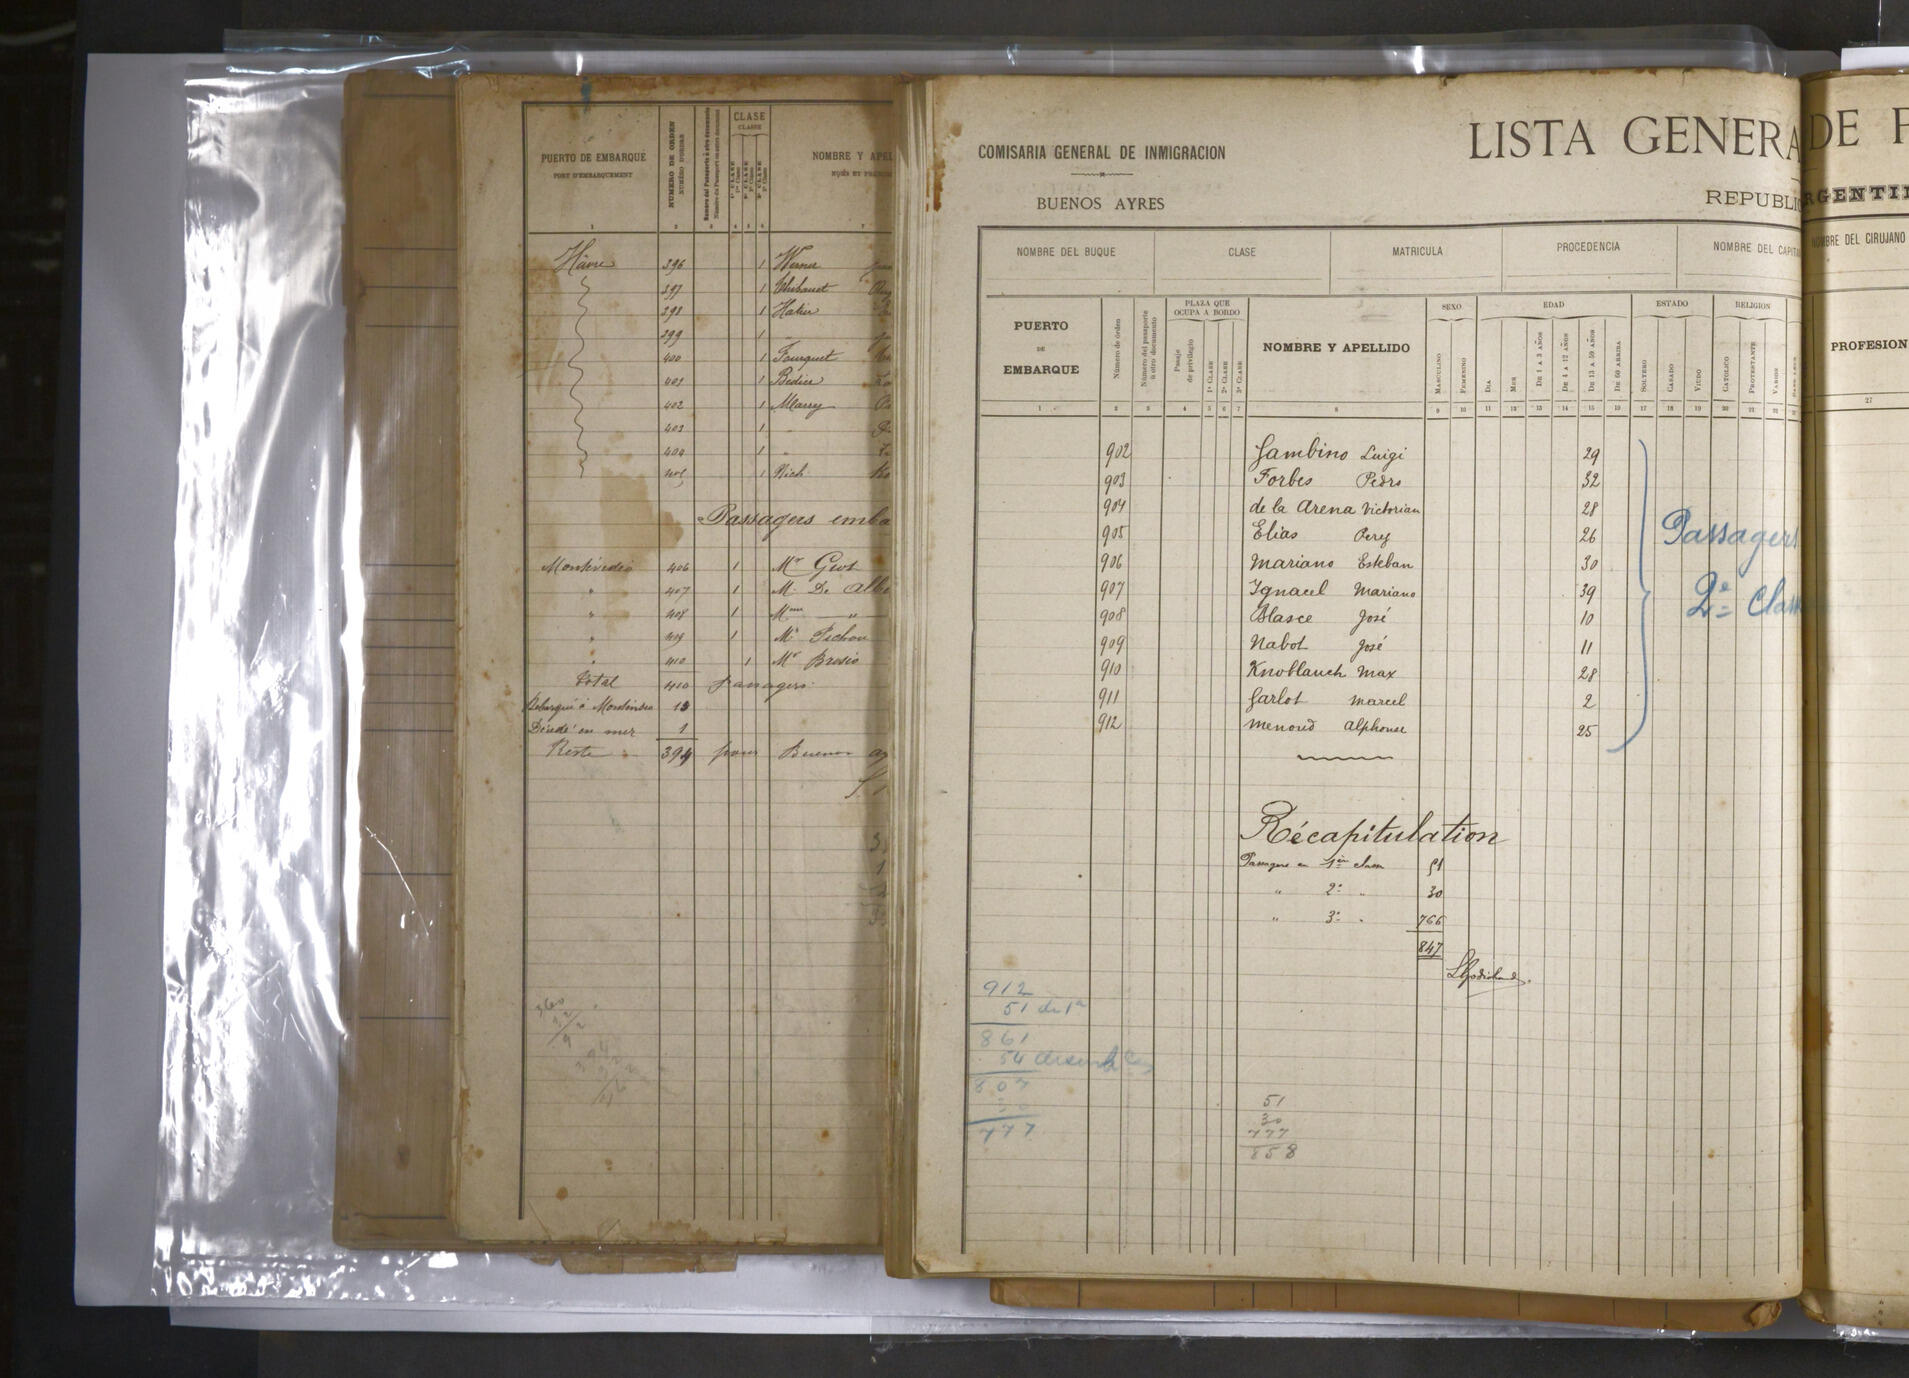 PUERTO DE EMBARQUE
PORT D'EMBARQUEMENT
NUMERO DE ORDEN
NUMÉRO D'ORDRE
CLASE
CLASSE
1ª CLASE
2ª CLASE
3ª CLASE
NOMBRE Y APEL
1 2 3 4 5 6 7
Hâvre 396 1 Werner
397 1 Thibaut
398 1 Hatier
399 1 "
400 1 Fourquet
401 1 Bedier
402 1 Marry
403 1 "
404 1 "
405 1 Nich
Passagers emba
Montévidéo 406 1 Mr Giot
" 407 1 M. De Alb
" 408 1 Mme "
" 409 1 Mr Pichon
" 410 1 Mr Bresio
Total 410 passagers
Debarqué à Montévideo 15
Décédé en mer 1
Reste 394 pour Buenos ay
LISTA GENERA DE P
COMISARIA GENERAL DE INMIGRACION
BUENOS AYRES
REPUBLIC RGENTIN
NOMBRE DEL BUQUE CLASE MATRICULA PROCEDENCIA NOMBRE DEL CAPITA OMBRE DEL CIRUJANO
PUERTO DE EMBARQUE
Número de órden
Número del pasaporte ú otro documento
PLAZA QUE OCUPA A BORDO
Pasaje de privilegio
1ª CLASE
2ª CLASE
3ª CLASE
NOMBRE Y APELLIDO
SEXO
MASCULINO
FEMENINO
EDAD
DIA
MES
DE 1 A 3 AÑOS
DE 4 A 12 AÑOS
DE 13 A 59 AÑOS
DE 60 ARRIBA
ESTADO
SOLTERO
CASADO
VIUDO
RELIGION
CATOLICO
PROTESTANTE
VARIOS
PROFESION
1 2 3 4 5 6 7 8 9 10 11 12 13 14 15 16 17 18 19 20 21 22 27
902 Gambino Luigi 29
903 Forbes Pedro 32
904 de la Arena Victorian 28
905 Elias Pery 26
906 Mariano Esteban 30
907 Ignacel Mariano 39
908 Blasce José 10
909 Nabot José 11
910 Knoblauch Max 28
911 Garlot Marcel 2
912 Menoud Alphonse 25
Passagers
2e Class
Récapitulation
Passagers en 1ère classe 51
" 2e " 30
" 3e " 766
847
912
51 de 1ª
861
54
807
30
777
51
30
777
858